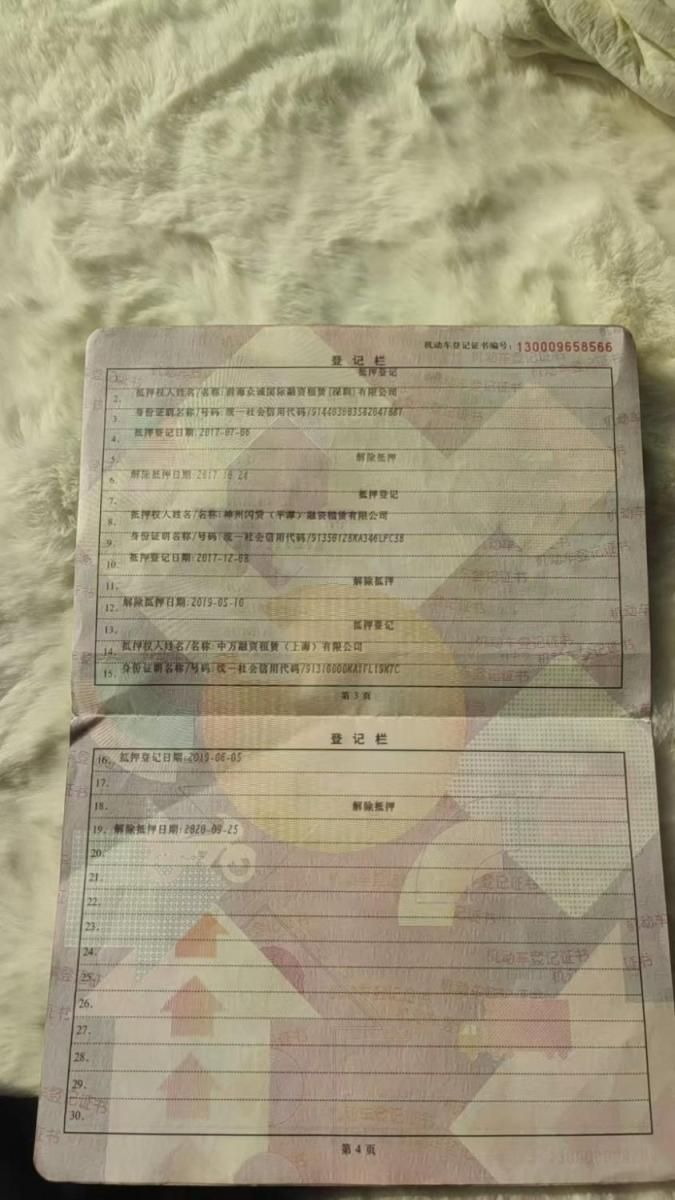 机动车登记证书编号：130009658566
登记栏
1. 抵押登记
2. 抵押权人姓名/名称:前海众诚国际融资租赁[深圳]有限公司
3. 身份证明名称/号码:统一社会信用代码/
4. 抵押登记日期:2017-07-06
5. 解除抵押
6. 解除抵押日期:2017-10-24
7. 抵押登记
8. 抵押权人姓名/名称:神州闪贷（平潭）融资租赁有限公司
9. 身份证明名称/号码:统一社会信用代码/
10. 抵押登记日期:2017-12-08
11. 解除抵押
12. 解除抵押日期:2019-05-10
13. 抵押登记
14. 抵押权人姓名/名称:中万融资租赁（上海）有限公司
15. 身份证明名称/号码:统一社会信用代码/
第 3 页
登记栏
16. 抵押登记日期:2019-06-05
17.
18. 解除抵押
19. 解除抵押日期:2020-09-25
20.
21.
22.
23.
24.
25.
26.
27.
28.
29.
30.
第 4 页